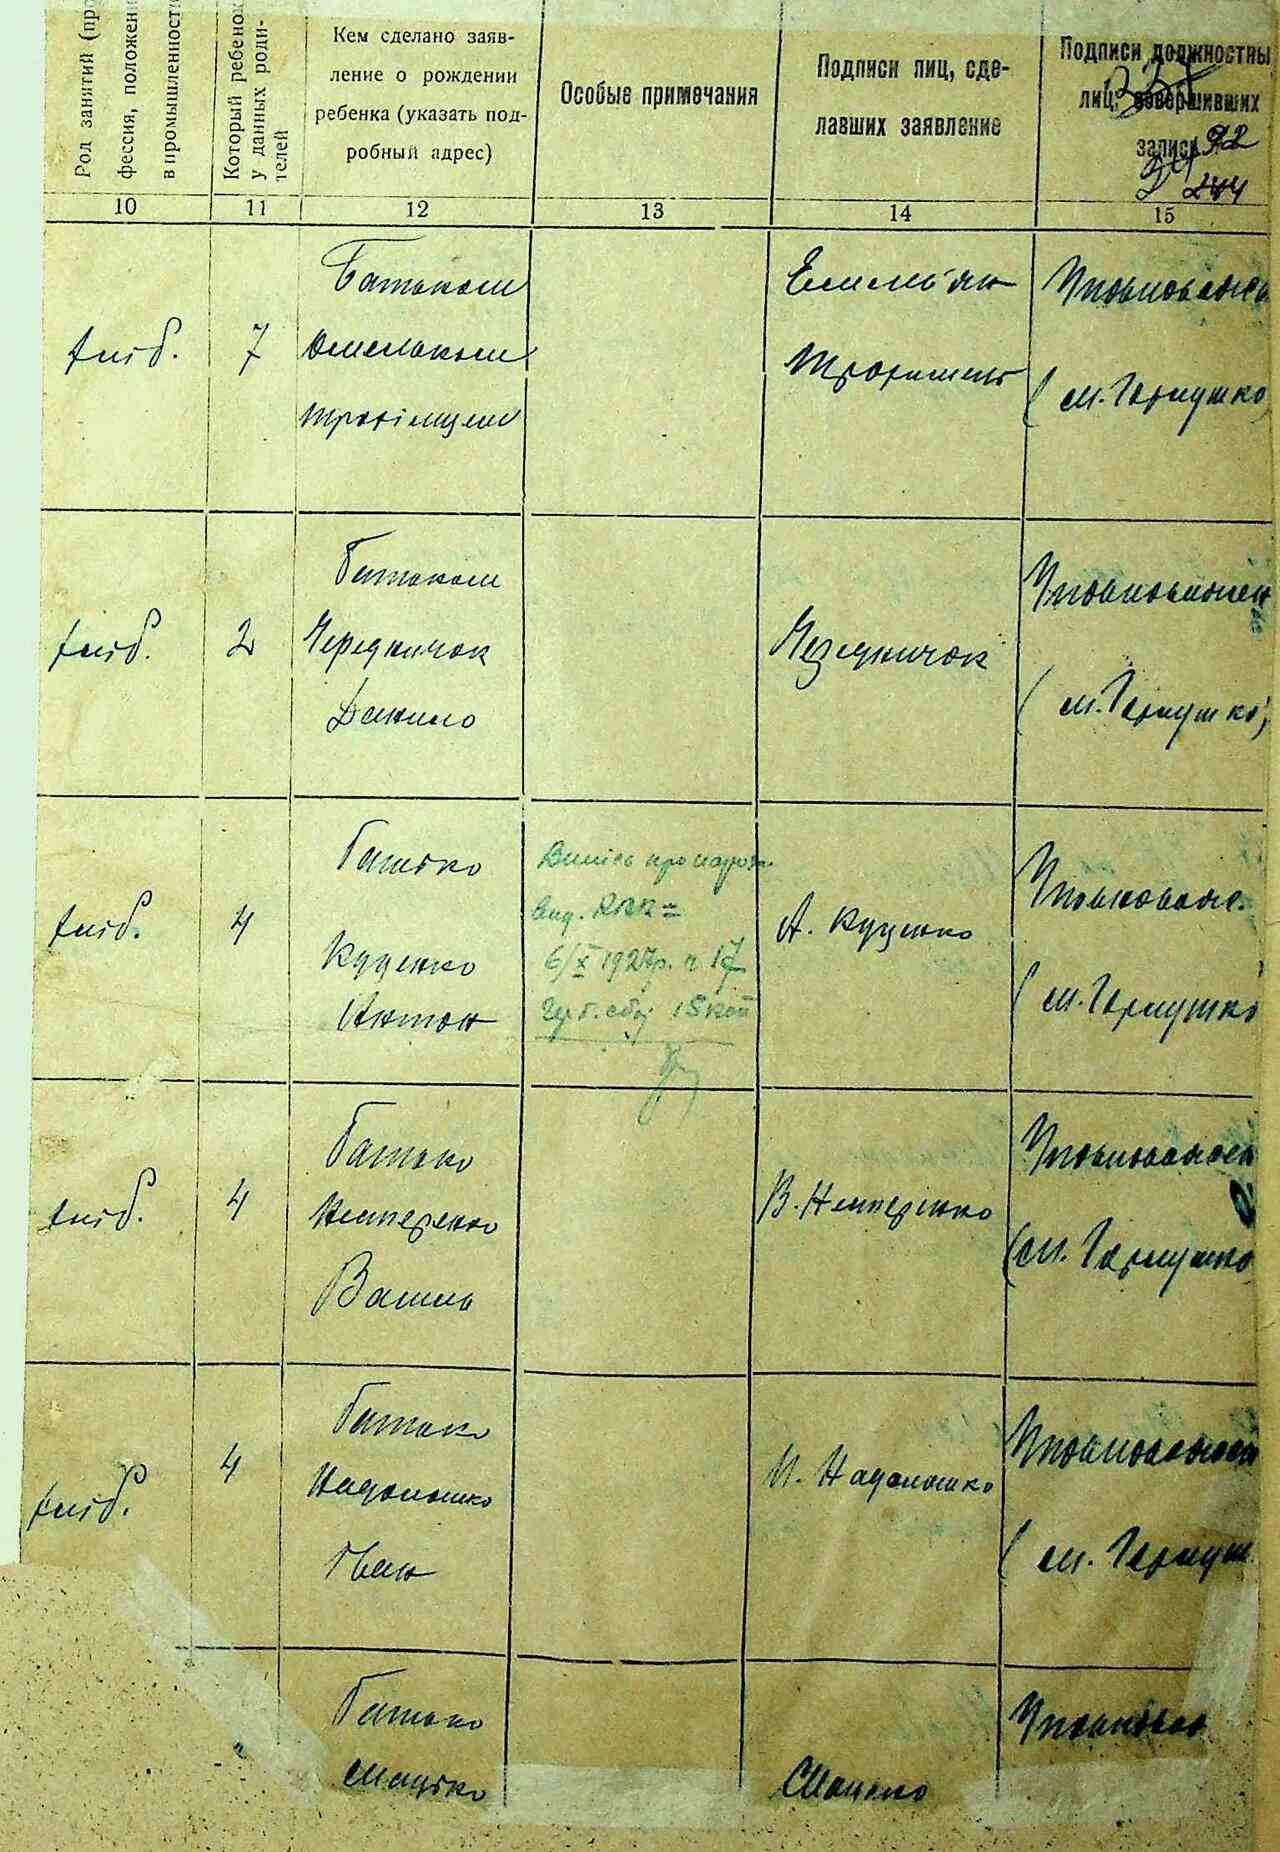 Род занятий (про
фессия, положени
в промышленности
Который ребенок
у данных роди-
телей
Кем сделано заяв-
ление о рождении
ребенка (указать под-
робный адрес)
Особые примечания
Подписи лиц, сде-
лавших заявление
Подписи должностны
лиц, совершивших
записи
92
244
10 11 12 13 14 15
хліб.
7
Батьком
Омельком
Трохімцем
Емельян
Уповноваж
(М. Гармушко
хліб.
2
Батьком
Чередничок
Данило
Чередничок
Уповноважен
(М. Гармушко)
хліб.
4
Батько
Куценко
Антон
Випись про народж.
вид.
6/X 1927р. ч 17
Герб. сбор 15 коп
А. Куценко
Уповноваж.
(М. Гармушко
хліб.
4
Батько
Нестеренко
Василь
В. Нестеренко
Уповноважен
(М. Гармушко
хліб.
4
Батько
Надолошко
Іван
И. Надолошко
Уповноважен
(М. Гармуш
Батько
Мацько
Уповноваж